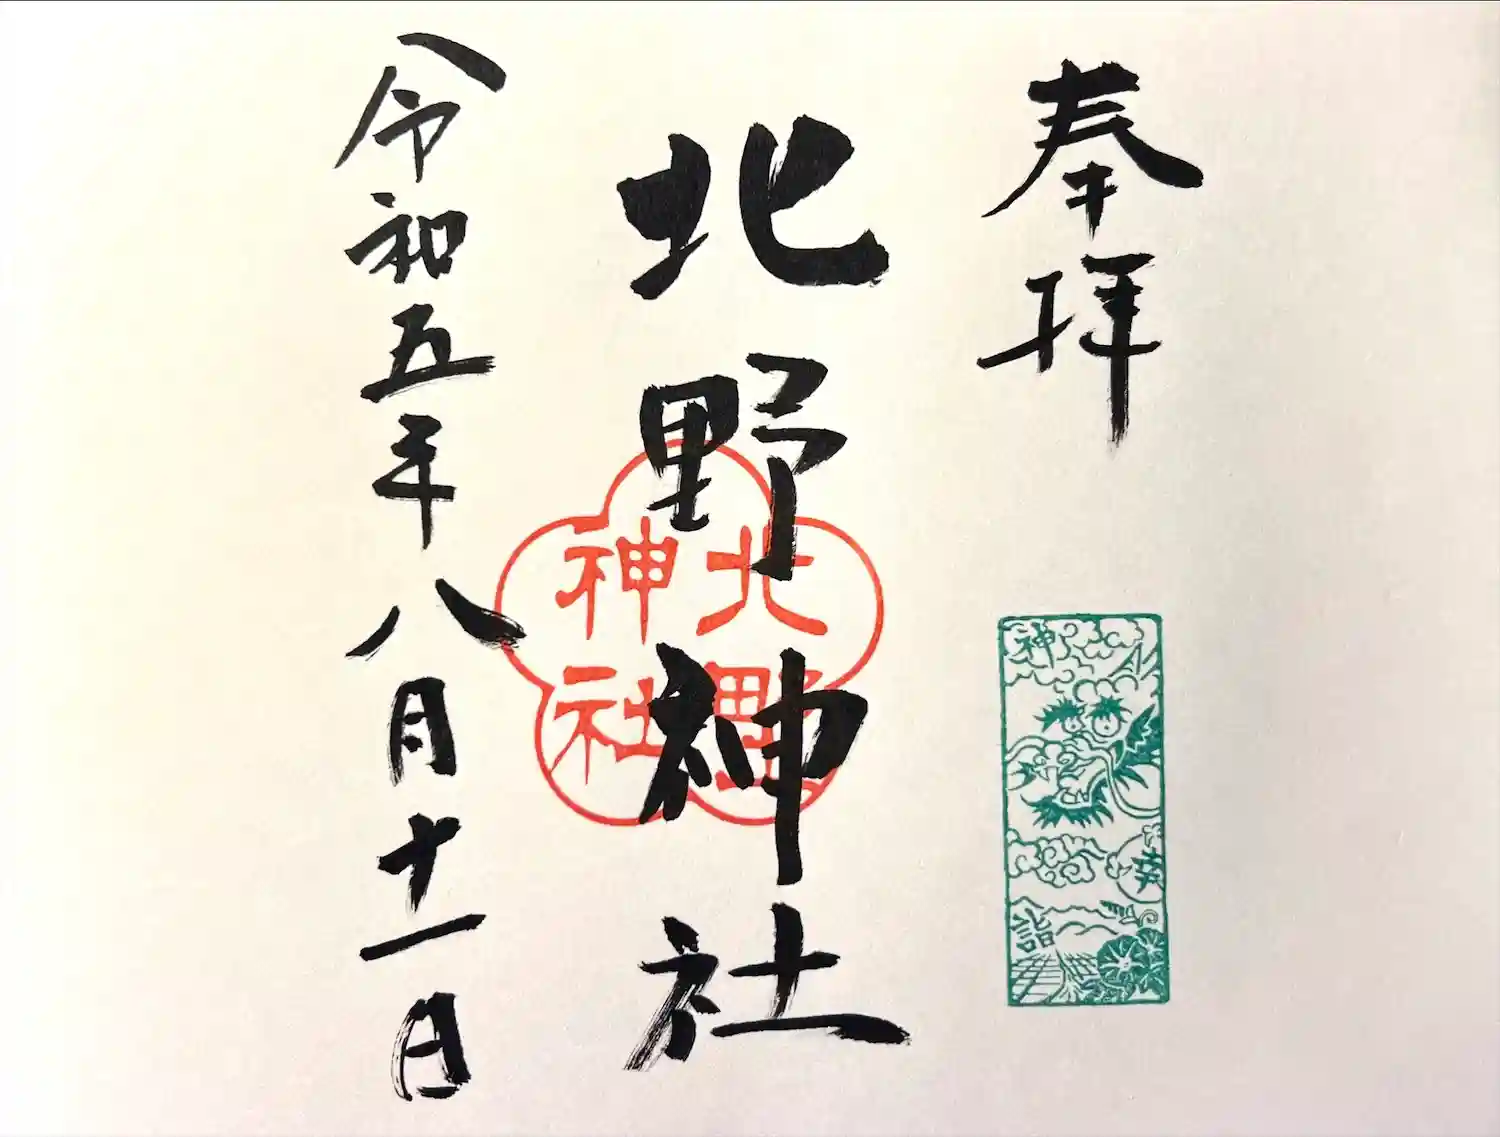 奉拝
北野神社
令和五年八月十一日
北野
神社
神
幸
詣